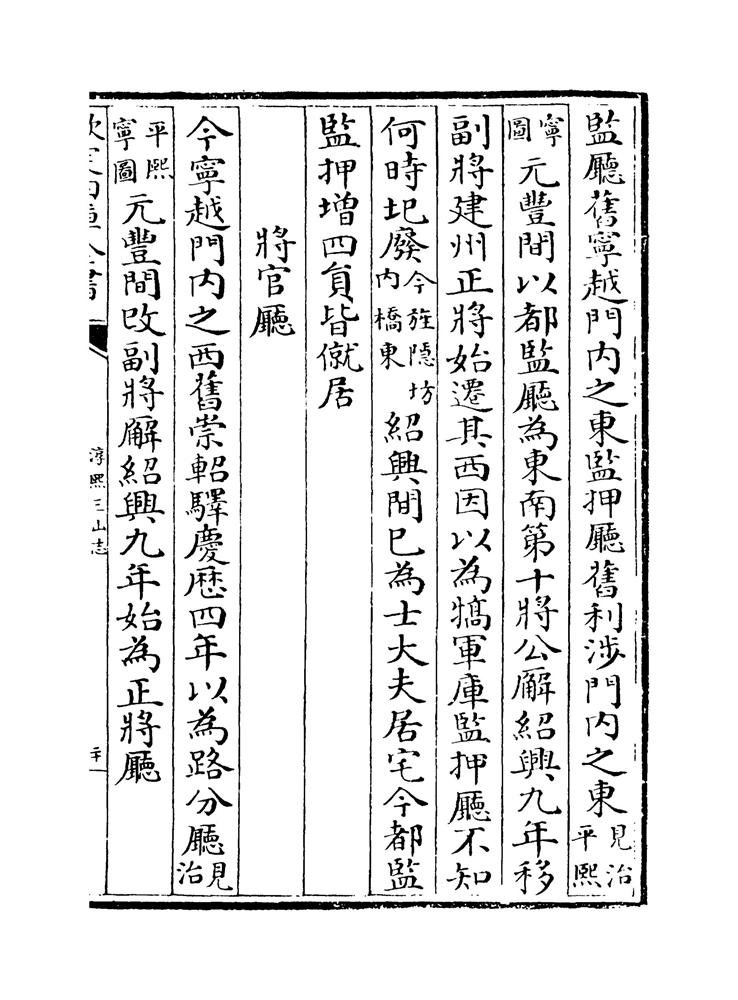 監廳舊寧越門内之東監押廳舊利涉門内之東見治平熙
寧圖元豐間以都監廳為東南第十將公廨紹興九年移
副將建州正將始遷其西因以為犒軍庫監押廳不知
何時圮廢今旌隠坊内橋東紹興間已為士大夫居宅今都監
監押增四員皆僦居
將官廳
今寧越門内之西舊崇軺驛慶歴四年以為路分廳見治
平熙寧圖元豐間改副將廨紹興九年始為正將廳
欽定四庫全書
淳熙三山志
二十一